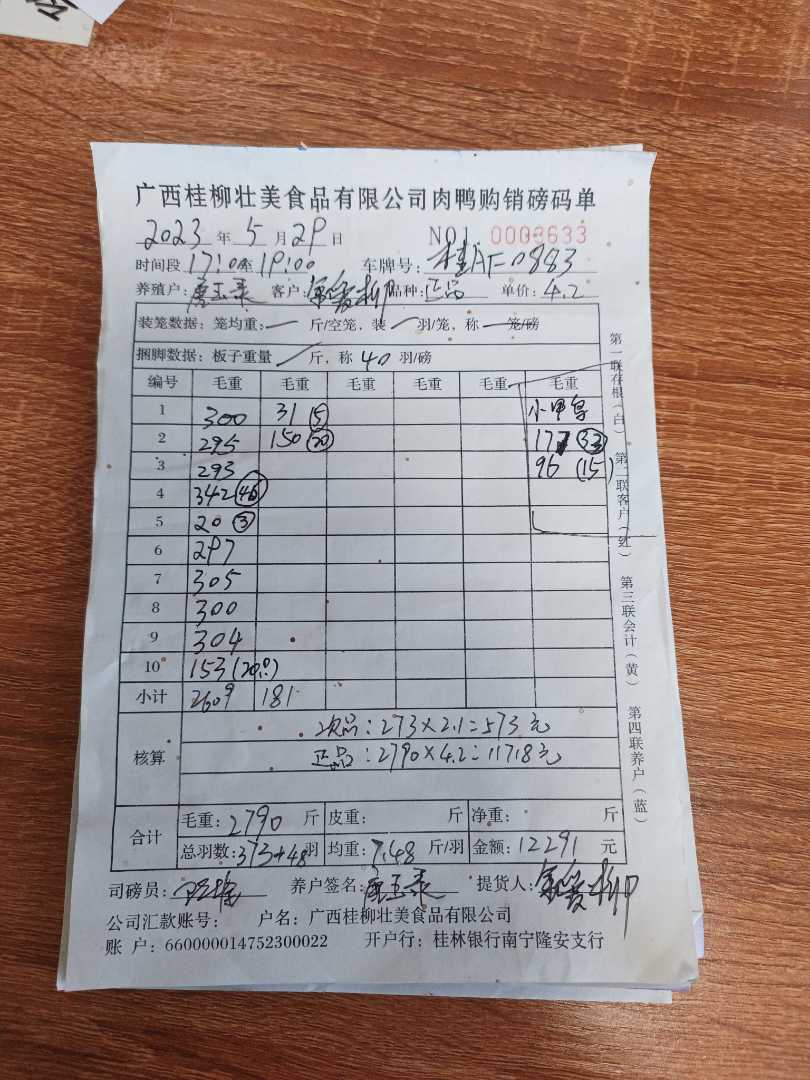 广西桂柳壮美食品有限公司肉鸭购销磅码单
2023 年 5 月 29 日 NO1 0003633
时间段 17:00至19:00 车牌号: 桂AF0883
养殖户: 唐玉 客户: 品种: 正品 单价: 4.2
装笼数据: 笼均重: 一 斤/空笼, 装 一 羽/笼, 称 一 笼/磅
捆脚数据: 板子重量 / 斤, 称 40 羽/磅
编号 毛重 毛重 毛重 毛重 毛重 毛重
1 300 31 (5) 小甲鸟
2 295 150 (20) 177 (33)
3 293 96 (15)
4 342 (45)
5 20 (3)
6 297
7 305
8 300
9 304
10 153 (20只)
小计 2609 181
核算 次品: 273×2.1=573元
正品: 2790×4.2=11718元
合计 毛重: 2790 斤 皮重: 斤 净重: 斤
总羽数: 373+48羽 均重: 7.48 斤/羽 金额: 12291 元
司磅员: 养户签名: 唐玉 提货人:
公司汇款账号: 户名: 广西桂柳壮美食品有限公司
账 户: 660000014752300022 开户行: 桂林银行南宁隆安支行
第一联存根(白) 第二联客户(红) 第三联会计(黄) 第四联养户(蓝)